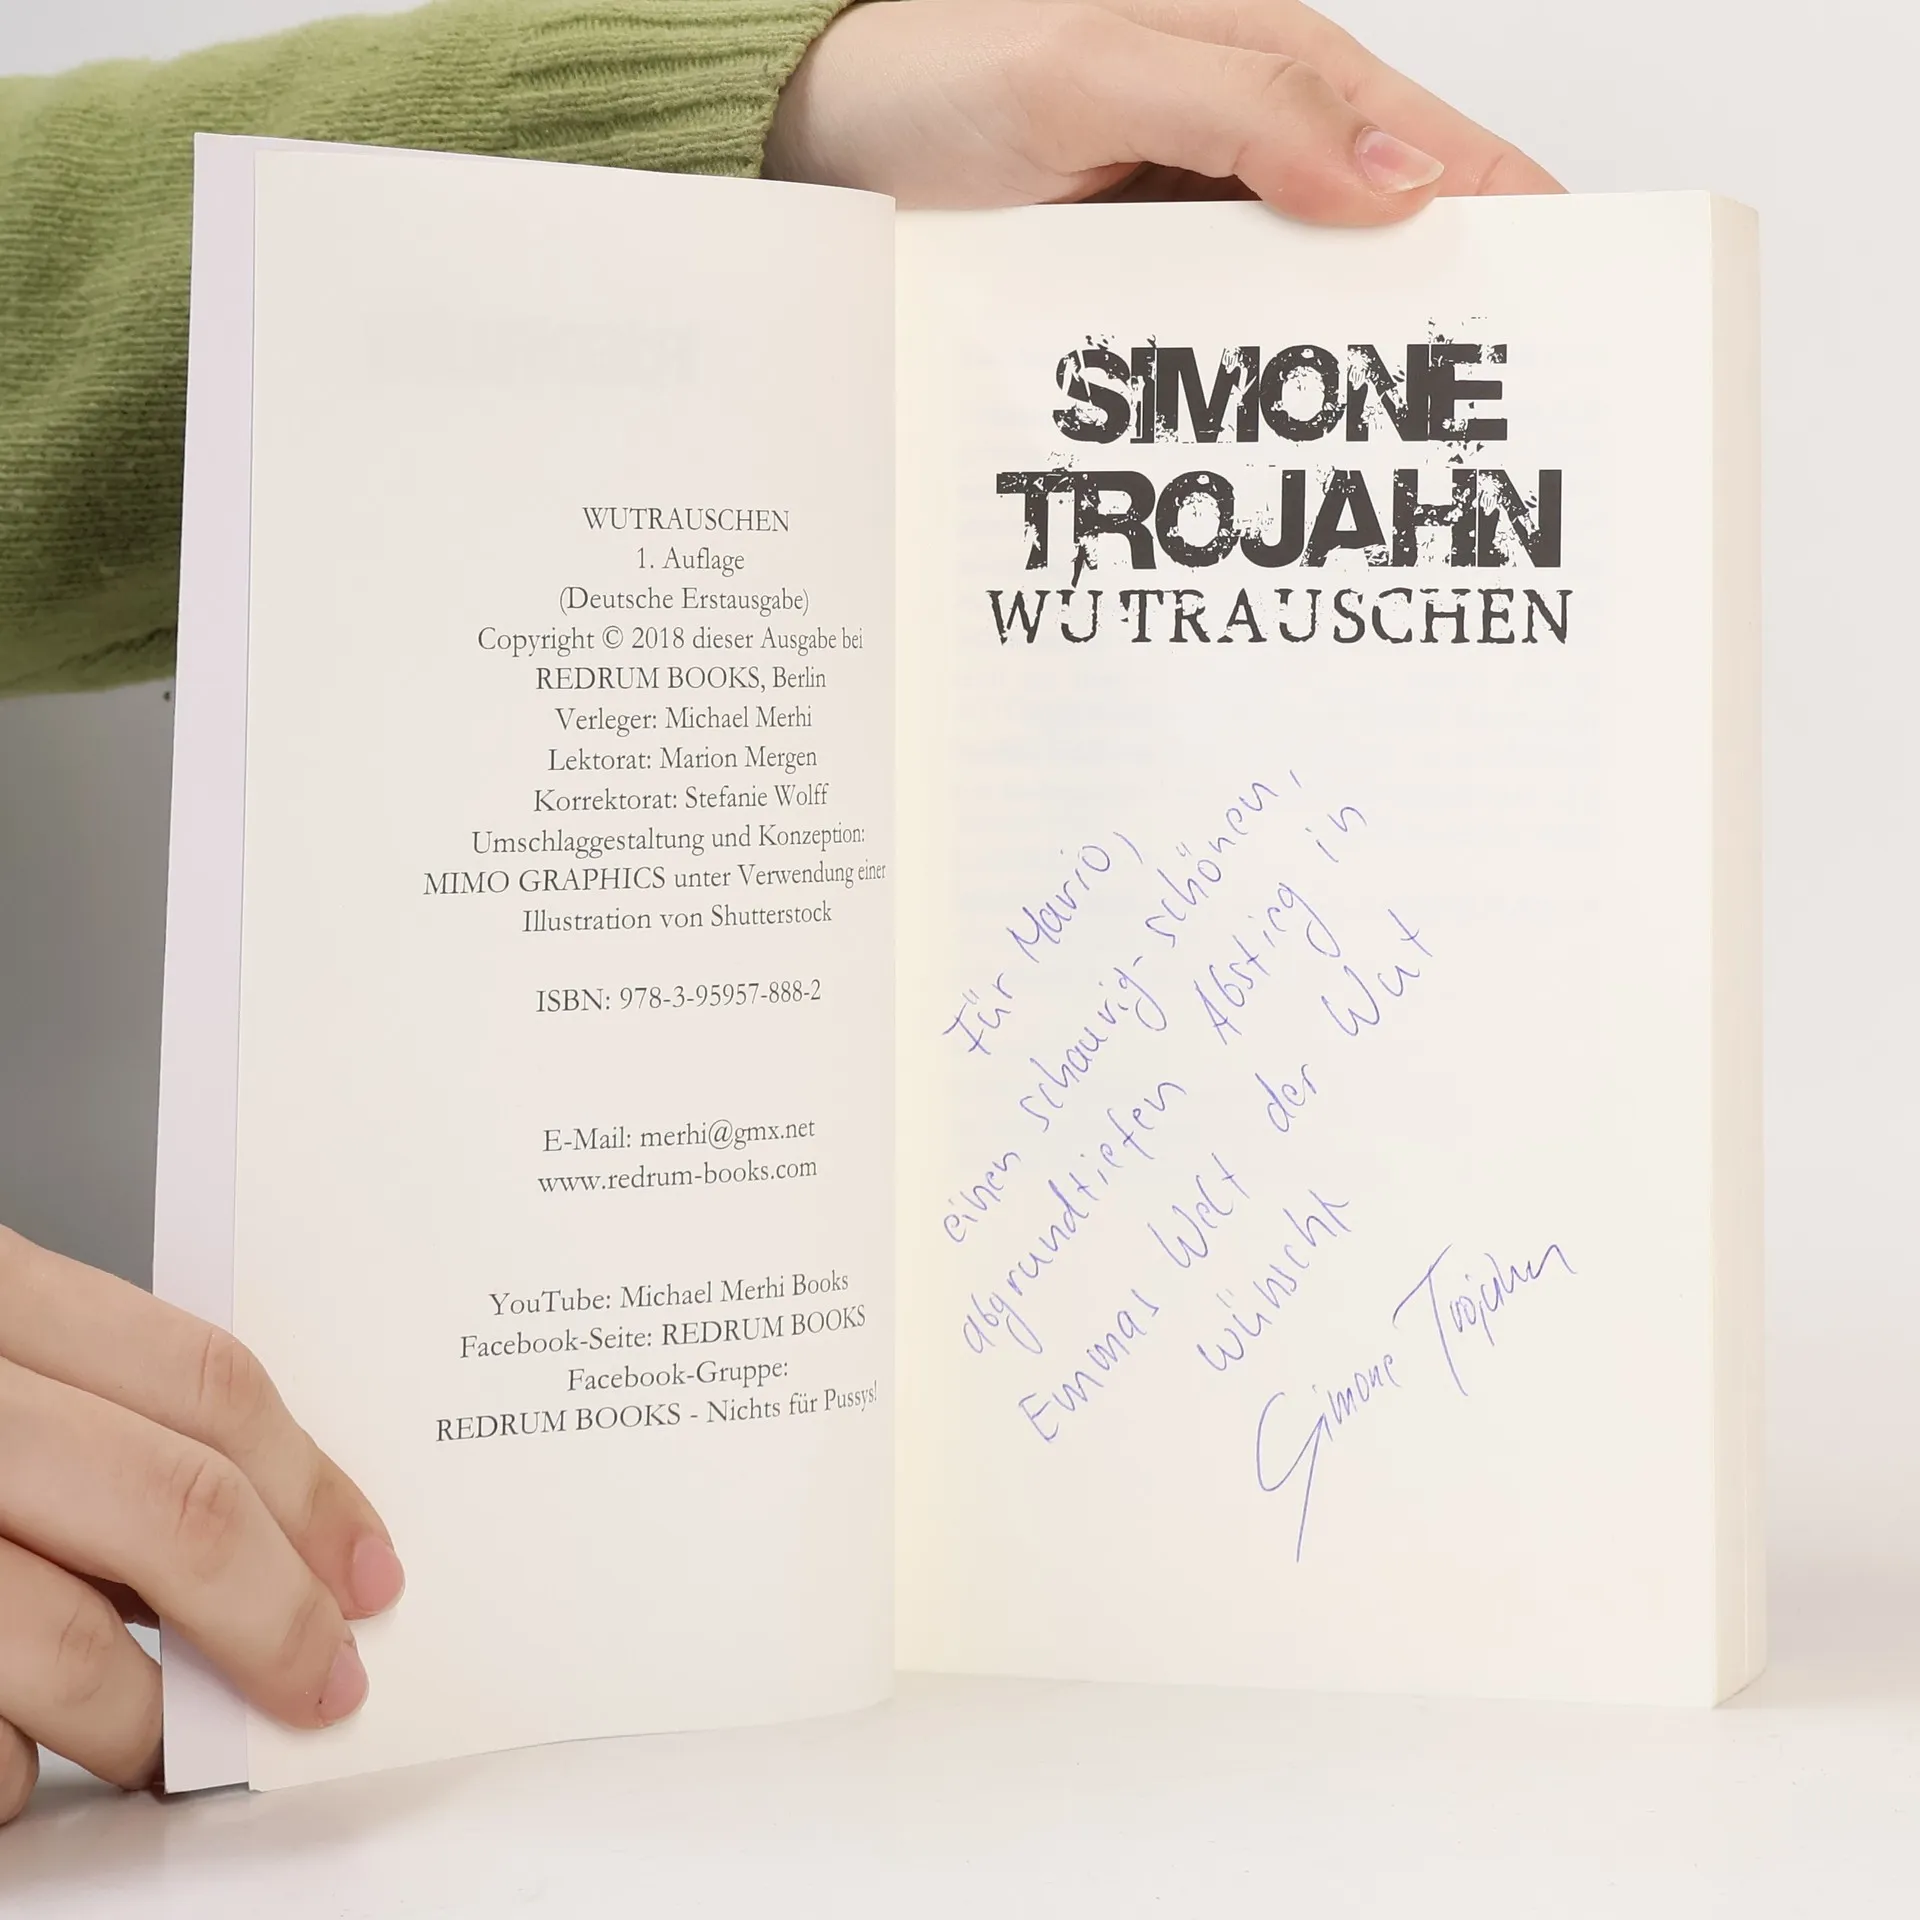 WUTRAUSCHEN
1. Auflage
(Deutsche Erstausgabe)
Copyright © 2018 dieser Ausgabe bei
REDRUM BOOKS, Berlin
Verleger: Michael Merhi
Lektorat: Marion Mergen
Korrektorat: Stefanie Wolff
Umschlaggestaltung und Konzeption:
MIMO GRAPHICS unter Verwendung einer
Illustration von Shutterstock
ISBN: 978-3-95957-888-2
E-Mail: merhi@gmx.net
www.redrum-books.com
YouTube: Michael Merhi Books
Facebook-Seite: REDRUM BOOKS
Facebook-Gruppe:
REDRUM BOOKS - Nichts für Pussys!
SIMONE
TROJAHN
WUTRAUSCHEN
Für Mario,
einen schaurig-schönen,
abgrundtiefen Abstieg in
Emmas Welt der Wut
wünscht
Simone Trojahn